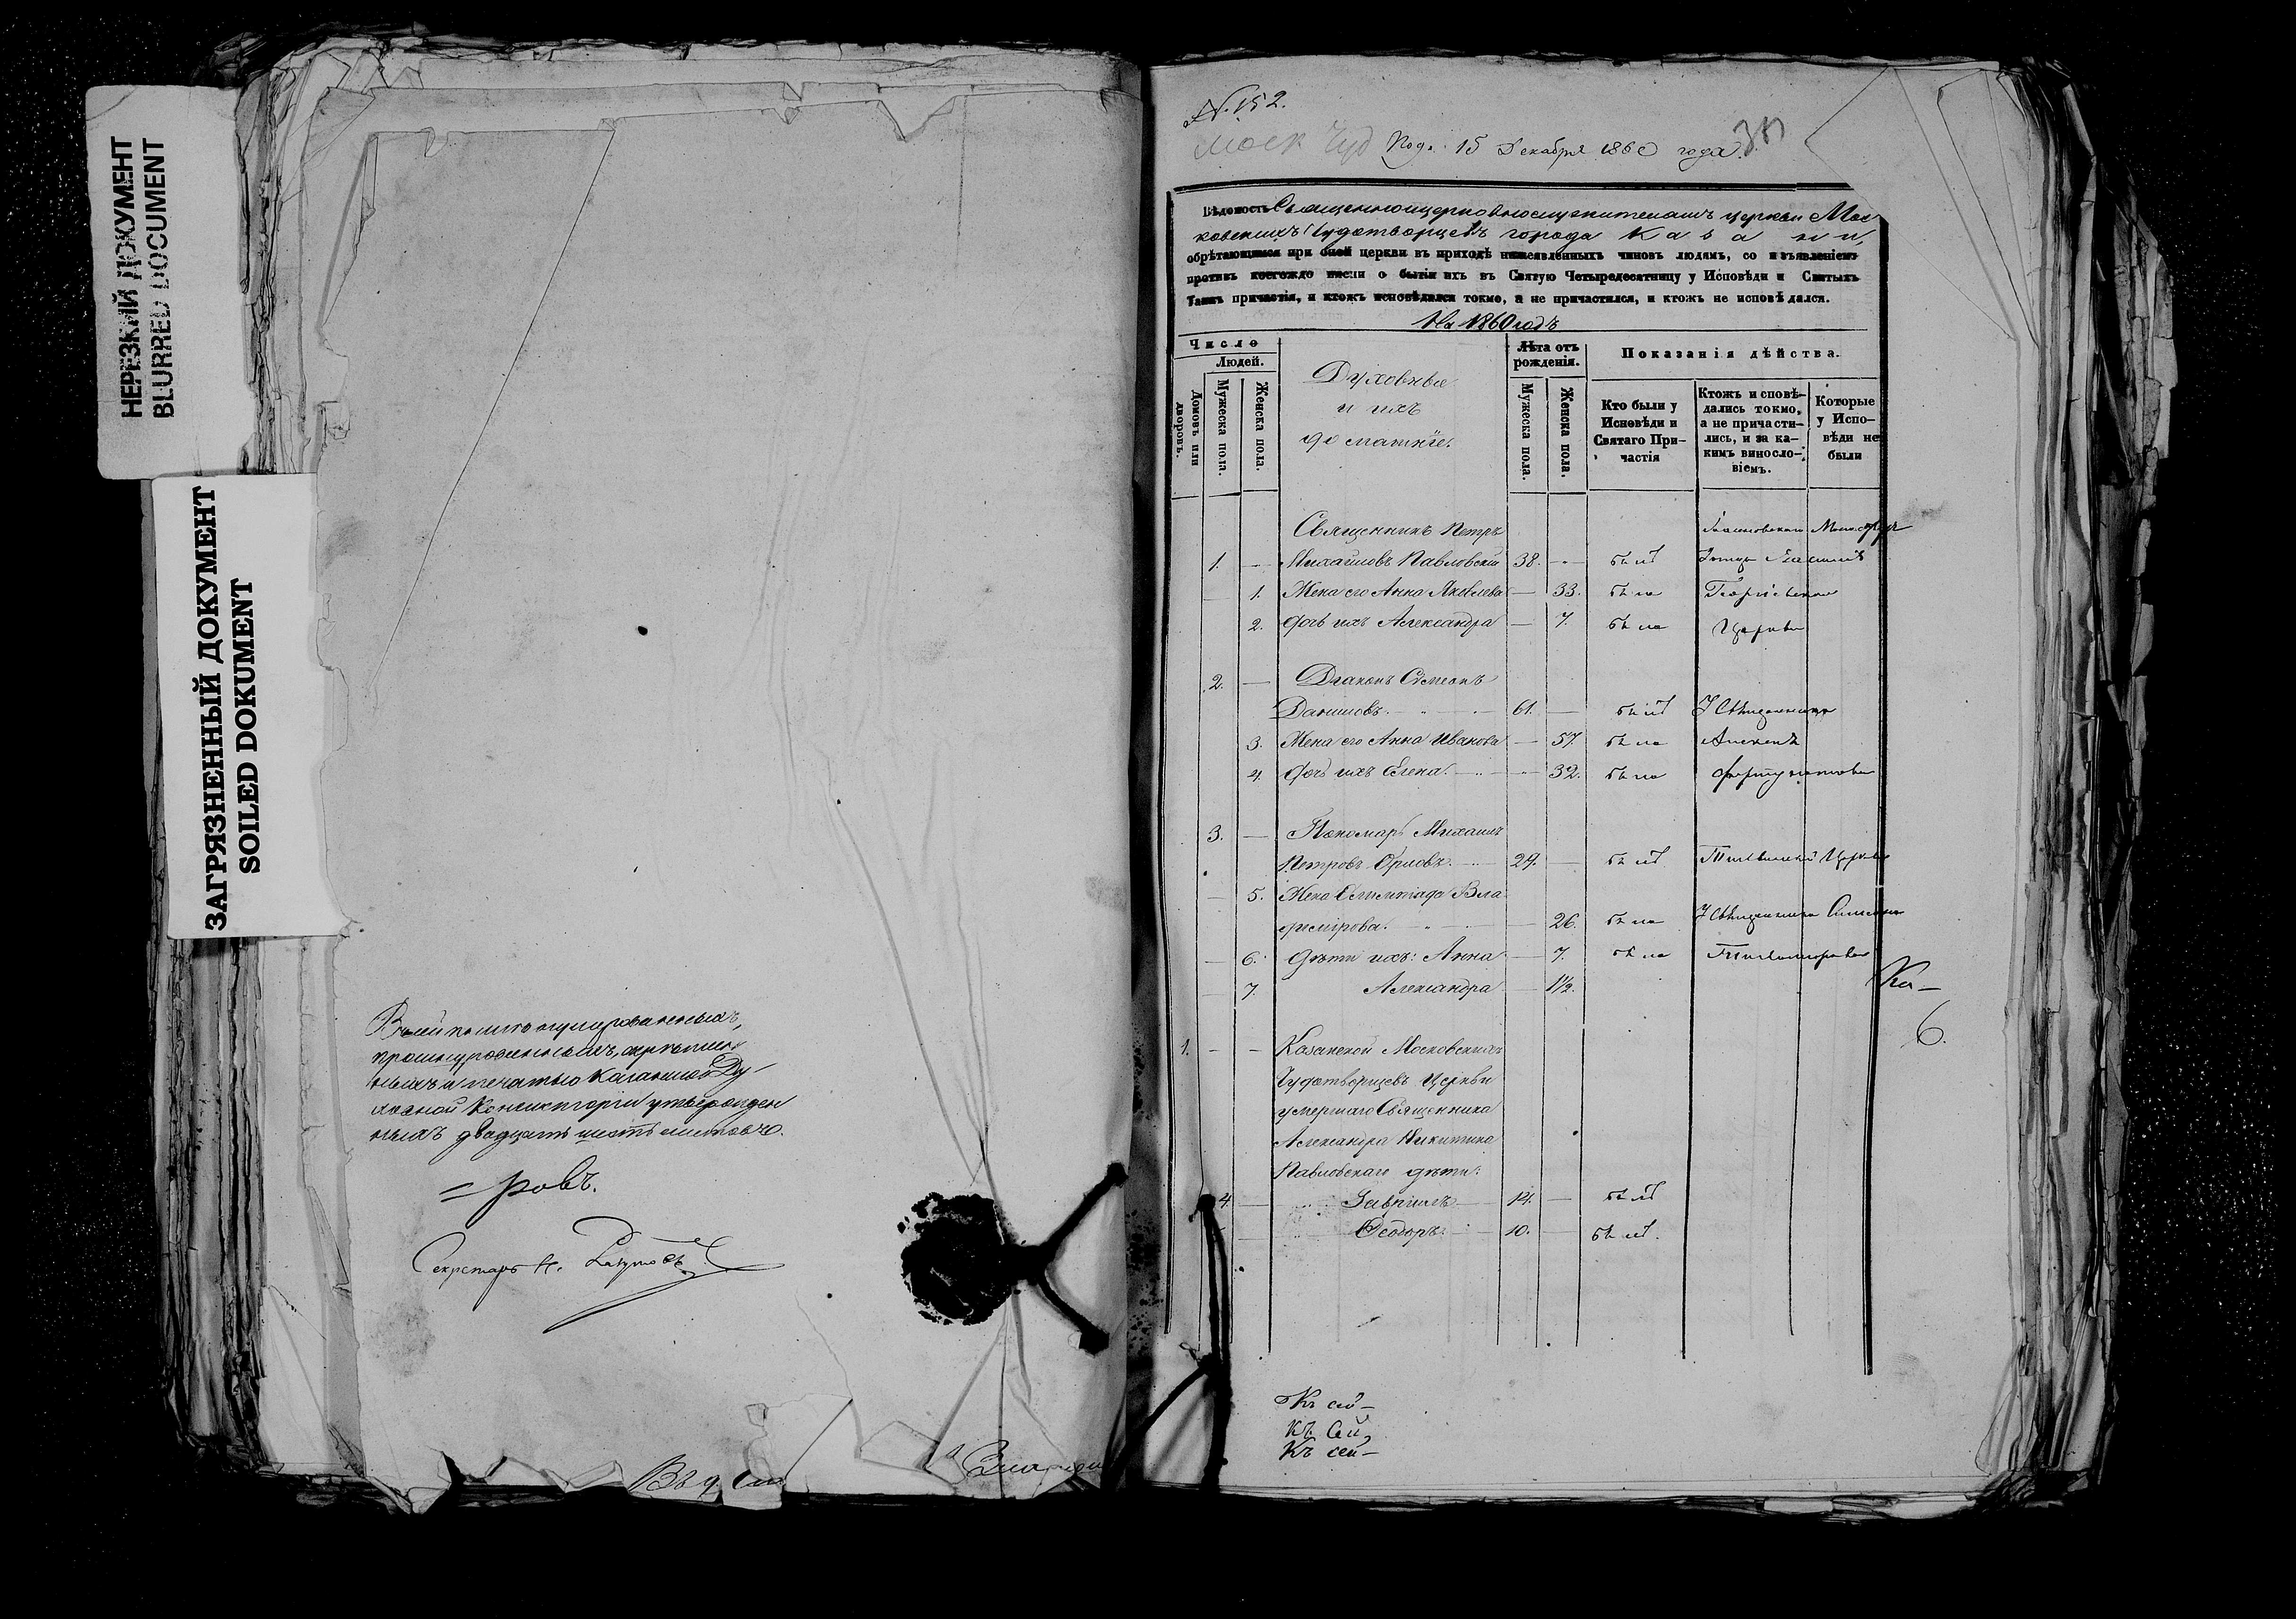 НЕРЕЗКИЙ ДОКУМЕНТ
BLURRED DOCUMENT
ЗАГРЯЗНЕННЫЙ ДОКУМЕНТ
SOILED DOKUMENT
прошнурованныхъ, скрѣплен-
ныхъ и печатью Казанской Ду-
ховной Консисторіи утвержден
ныхъ двадцать шесть листовъ.
=ровъ.
Секретарь Н.
Въ
N. 152.
Моск Чуд Под. 15 Декабря 1860 года.
Вѣдомость Священноцерковнослужителямъ церкви Мос
ковскихъ Чудотворцевъ города Казани,
обрѣтающимся при оной церкви въ приходѣ нижеявленныхъ чиновъ людямъ, со изъявленіемъ
противъ коегождо имени о бытіи ихъ въ Святую Четыредесятницу у Исповѣди и Святыхъ
Таинъ причастія, и ктожъ исповѣдался токмо, а не причастился, и ктожъ не исповѣдался.
На 1860 годъ
Число
Людей.
Домовъ или дворовъ.
Мужеска пола.
Женска пола.
Духовные
и ихъ
домашніе.
Лѣта отъ
рожденія.
Мужеска пола
Женска пола.
Показанія дѣйства.
Кто были у
Исповѣди и
Святаго При-
частія
Ктожъ исповѣ-
дались токмо,
а не причасти-
лись, и за ка-
кимъ винослo-
віемъ.
Которые
у Испо-
вѣди не
были
Священникъ Петръ
1. — Михайловъ Павловскій 38. — былъ
— 1. Жена его Анна Яковлева — 33. была Георгіевской
2. Дочь ихъ Александра — 7. была Церкви
2. — Діаконъ Симеонъ
Даниловъ. — 61. — былъ У Священника
3. Жена его Анна Иванова — 57. была Алексѣя
4. Дочь ихъ Елена. — 32. была Фортунатова
3. — Пономарь Михаилъ
Петровъ Орловъ. — 29. — былъ Тихвинской Церкви
— 5. Жена Олимпіада Вла
димірова. — 26. была У Священника
— 6. Дѣти ихъ: Анна — 7. была
— 7. Александра — 1½.
Ка—
6.
1. — — Казанской Московскихъ
Чудотворцевъ Церкви
умершаго Священника
Александра Никитина
Павловскаго дѣти:
4 — Гавріилъ — 14. — былъ
— Ѳеодоръ. — 10. — былъ.
Къ сей—
Къ Сей,
Къ сей—